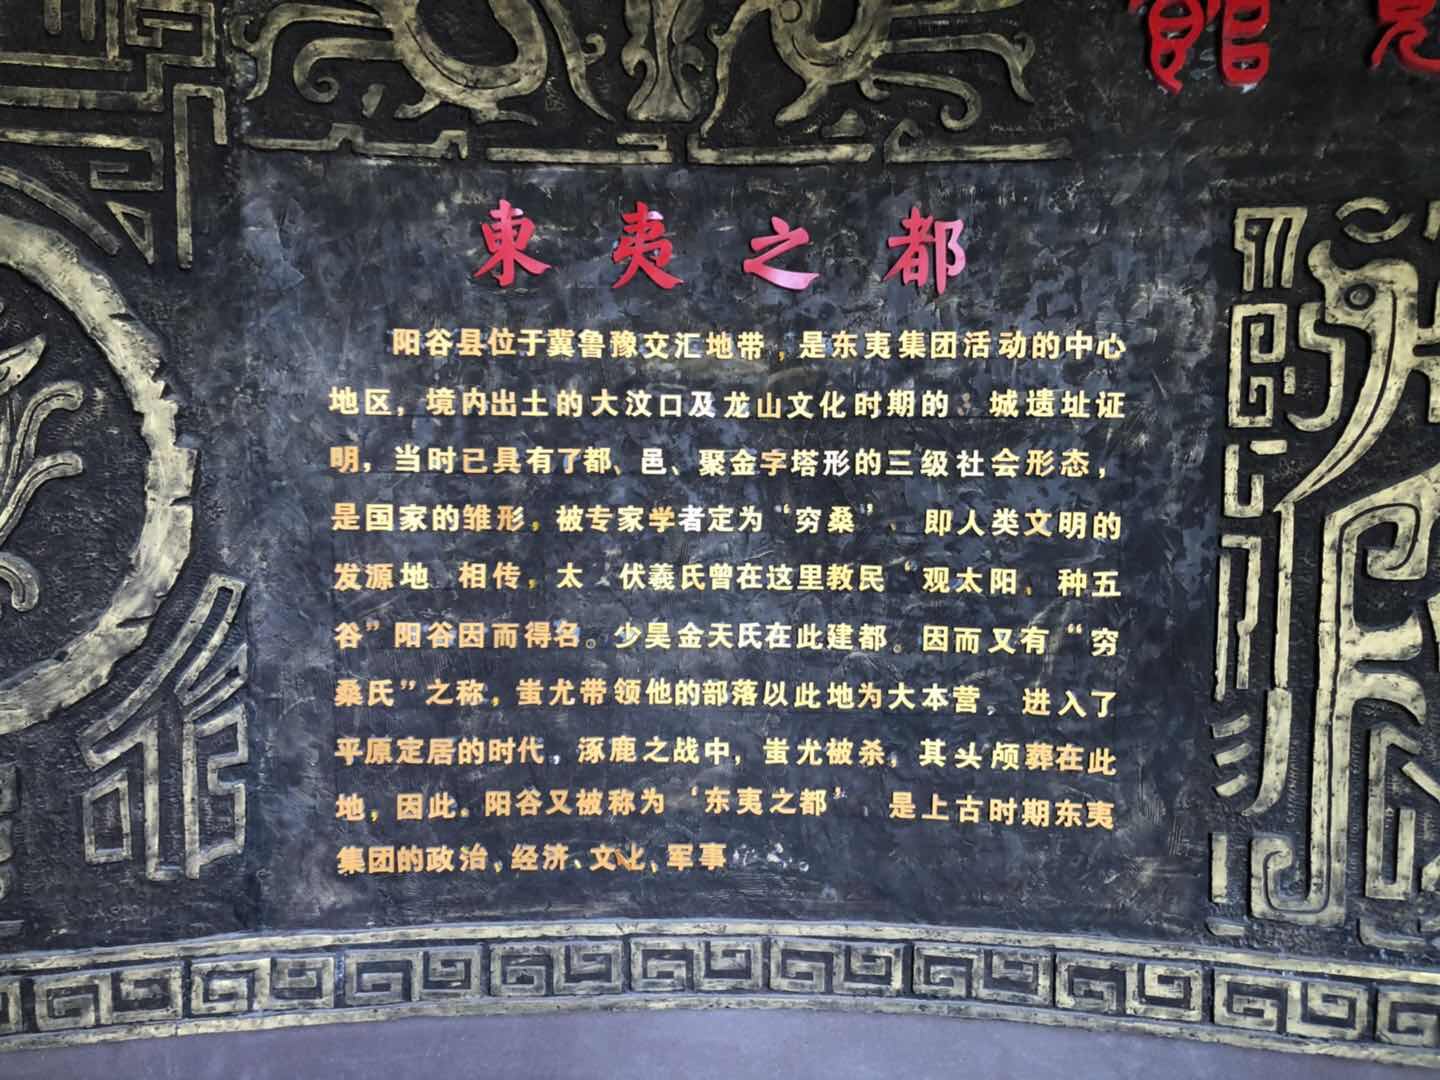 館
東夷之都
阳谷县位于冀鲁豫交汇地带，是东夷集团活动的中心
地区，境内出土的大汶口及龙山文化时期的 城遗址证
明，当时已具有了都、邑、聚金字塔形的三级社会形态，
是国家的雏形，被专家学者定为“穷桑”、即人类文明的
发源地 相传，太 伏羲氏曾在这里教民“观太阳，种五
谷”阳谷因而得名。少昊金天氏在此建都。因而又有“穷
桑氏”之称，蚩尤带领他的部落以此地为大本营，进入了
平原定居的时代，涿鹿之战中，蚩尤被杀，其头颅葬在此
地，因此。阳谷又被称为‘东夷之都’，是上古时期东夷
集团的政治、经济、文化、军事